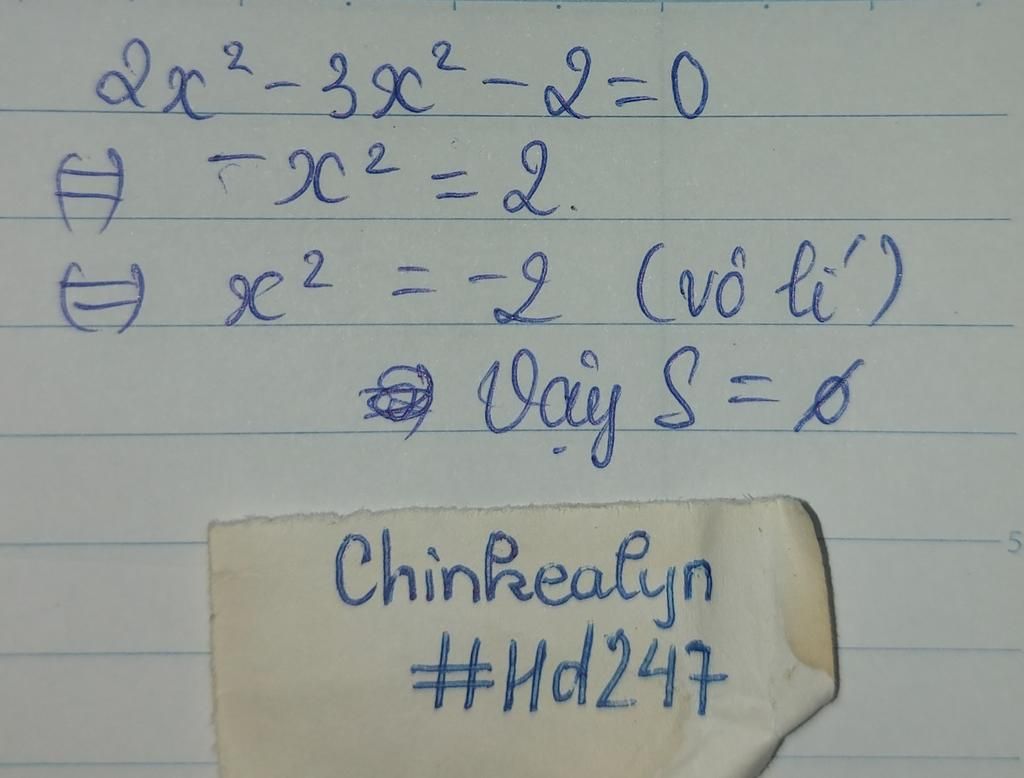 2x² - 3x² - 2 = 0
⇔ -x² = 2.
⇔ x² = -2 (vô lí)
Vậy S = ∅
5
Chinkealyn
#Hd247